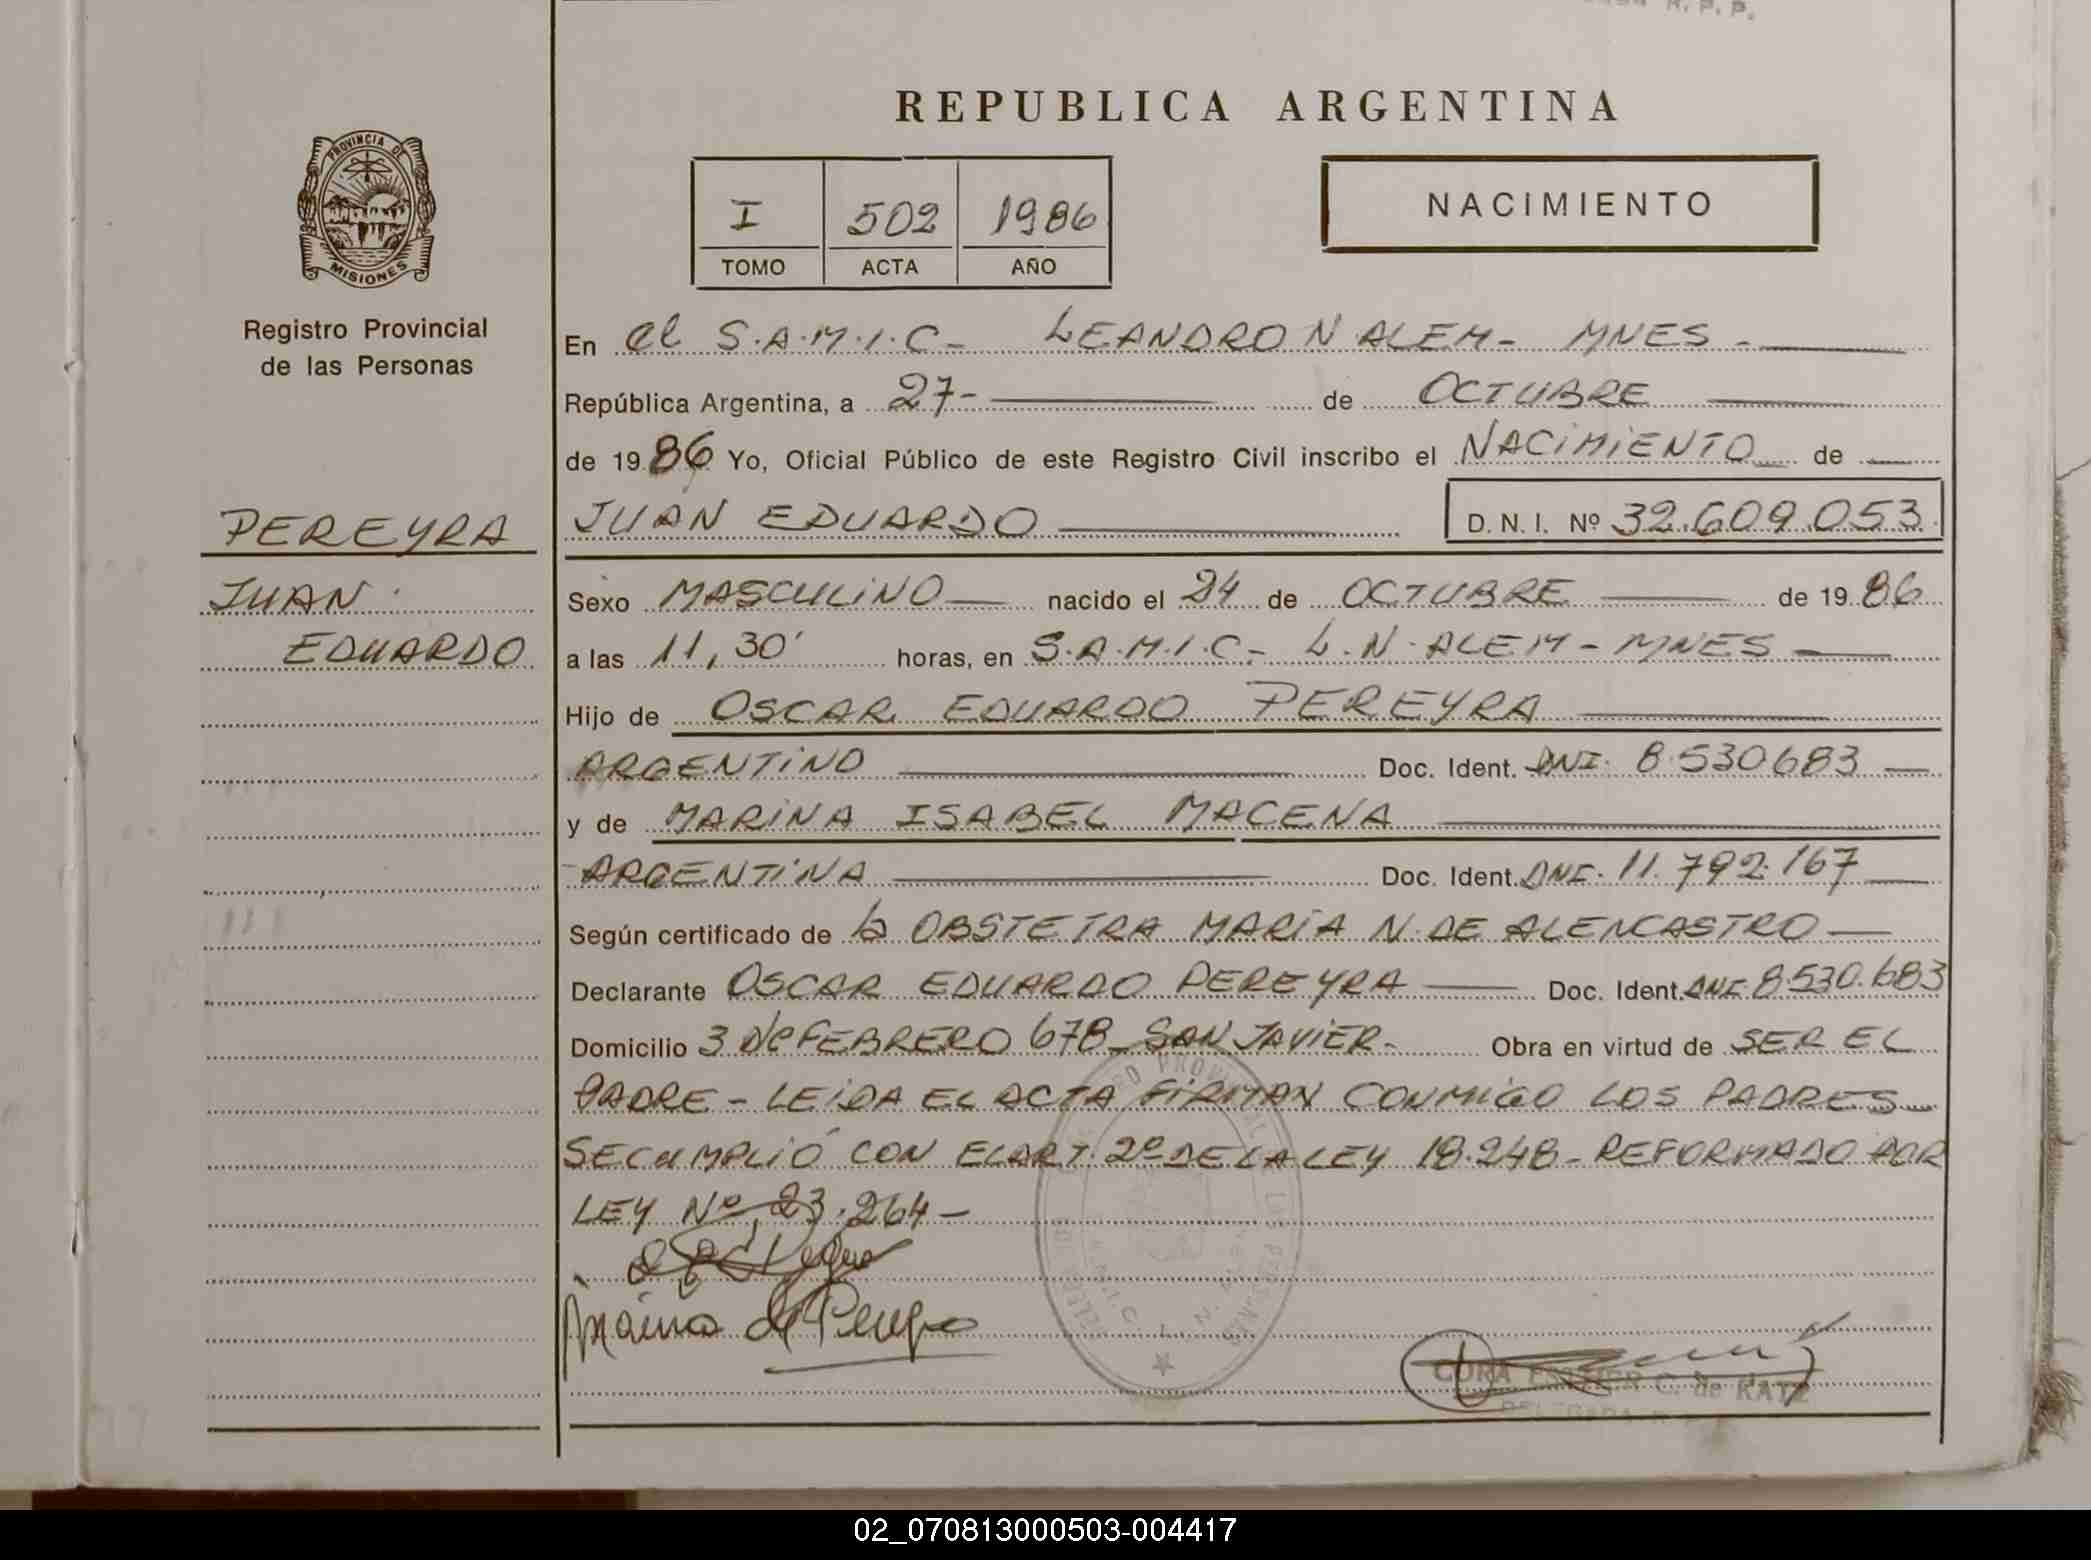 R.P.P.
REPUBLICA ARGENTINA
PROVINCIA DE
MISIONES
Registro Provincial
de las Personas
I 502 1986
TOMO ACTA AÑO
NACIMIENTO
En el S.A.M.I.C- LEANDRO N ALEM- MNES-
República Argentina, a 27- de OCTUBRE
de 1986 Yo, Oficial Público de este Registro Civil inscribo el NACIMIENTO de
PEREYRA
JUAN EDUARDO D. N. I. Nº 32.609.053
JUAN
EDUARDO
Sexo MASCULINO nacido el 24 de OCTUBRE de 1986
a las 11,30' horas, en S.A.M.I.C- L.N.ALEM-MNES
Hijo de OSCAR EDUARDO PEREYRA
ARGENTINO Doc. Ident. DNI. 8.530683
y de MARINA ISABEL MACENA
ARGENTINA Doc. Ident. DNI. 11.792.167
Según certificado de la OBSTETRA MARIA N. DE ALENCASTRO
Declarante OSCAR EDUARDO PEREYRA Doc. Ident. DNI 8.530.683
Domicilio 3 de FEBRERO 678 SAN JAVIER- Obra en virtud de SER EL
PADRE - LEIDA EL ACTA FIRMAN CONMIGO LOS PADRES
SECUMPLIÓ CON EL ART. 2º DE LA LEY 18.248- REFORMADO POR
LEY Nº 23.264-
Marina de Pereyra
CORA ESTHER C. de KATZ
DELEGADA
02_070813000503-004417